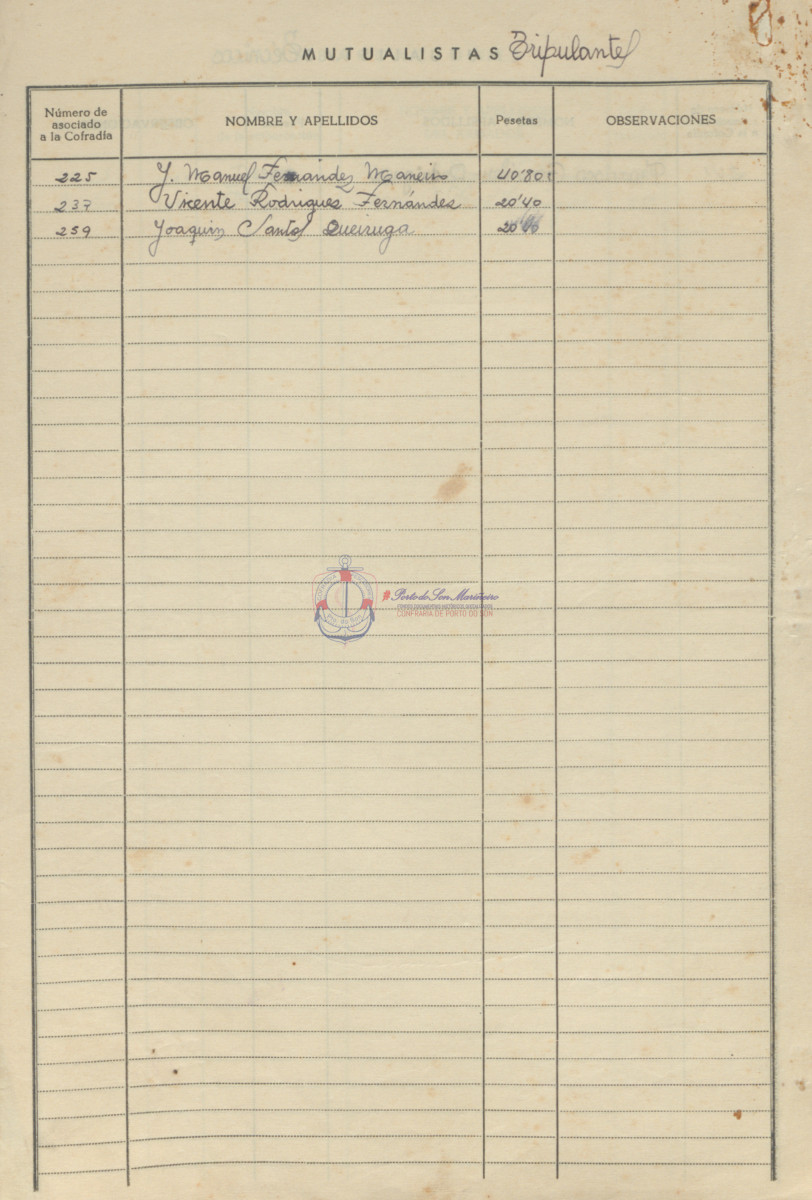 MUTUALISTAS Tripulantes
Número de asociado a la Cofradía
NOMBRE Y APELLIDOS
Pesetas
OBSERVACIONES
225 J. Manuel Fernandez Maneiro 40'80
237 Vicente Rodrigues Fernández 20'40
259 Joaquin Santos Queiruga
Porto do Son Mariñeiro
CONFRARÍA DE PORTO DO SON